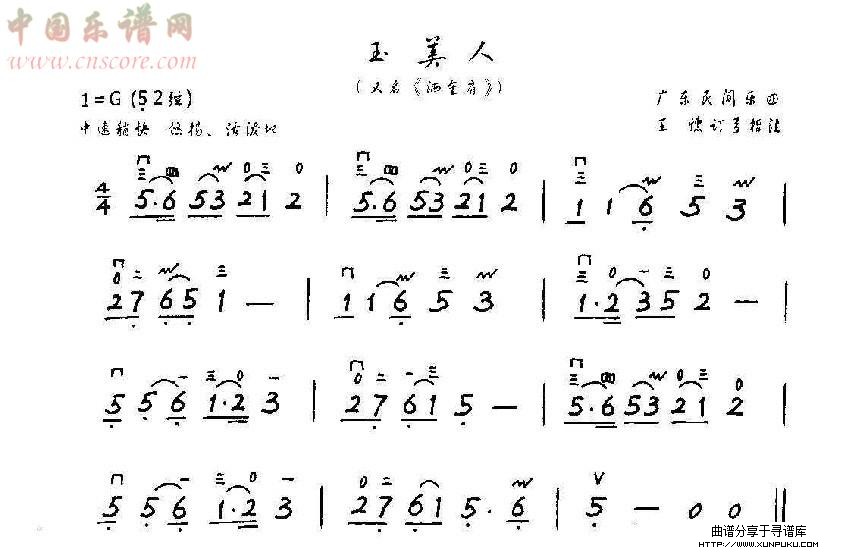 中国乐谱网
www.cnscore.com
玉美人
(又名《洒金扇》)
1=G (5 2弦)
广东民间乐曲
中速稍快 悠扬、活泼地
4/4 5.6 53 21 2 | 5.6 53 21 2 | 1 1 6 5 3 |
27 65 1 — | 1 1 6 5 3 | 1.2 35 2 — |
5 5 6 1.2 3 | 27 61 5 — | 5.6 53 21 2 |
5 5 6 1.2 3 | 27 61 5. 6 | 5 — 0 0 ||
曲谱分享于寻谱库
HTTP://WWW.XUNPUKU.COM